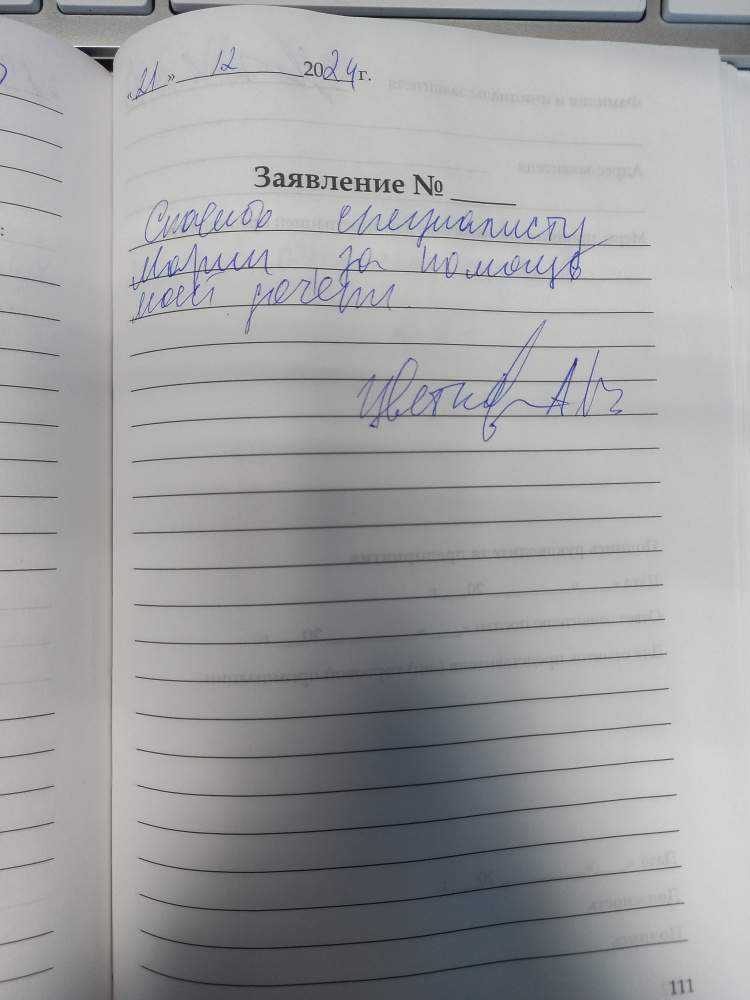 «21» 12 2024 г.
Заявление № ____
Спасибо специалисту
Марии за помощь
моей дочери.
Цветков
111